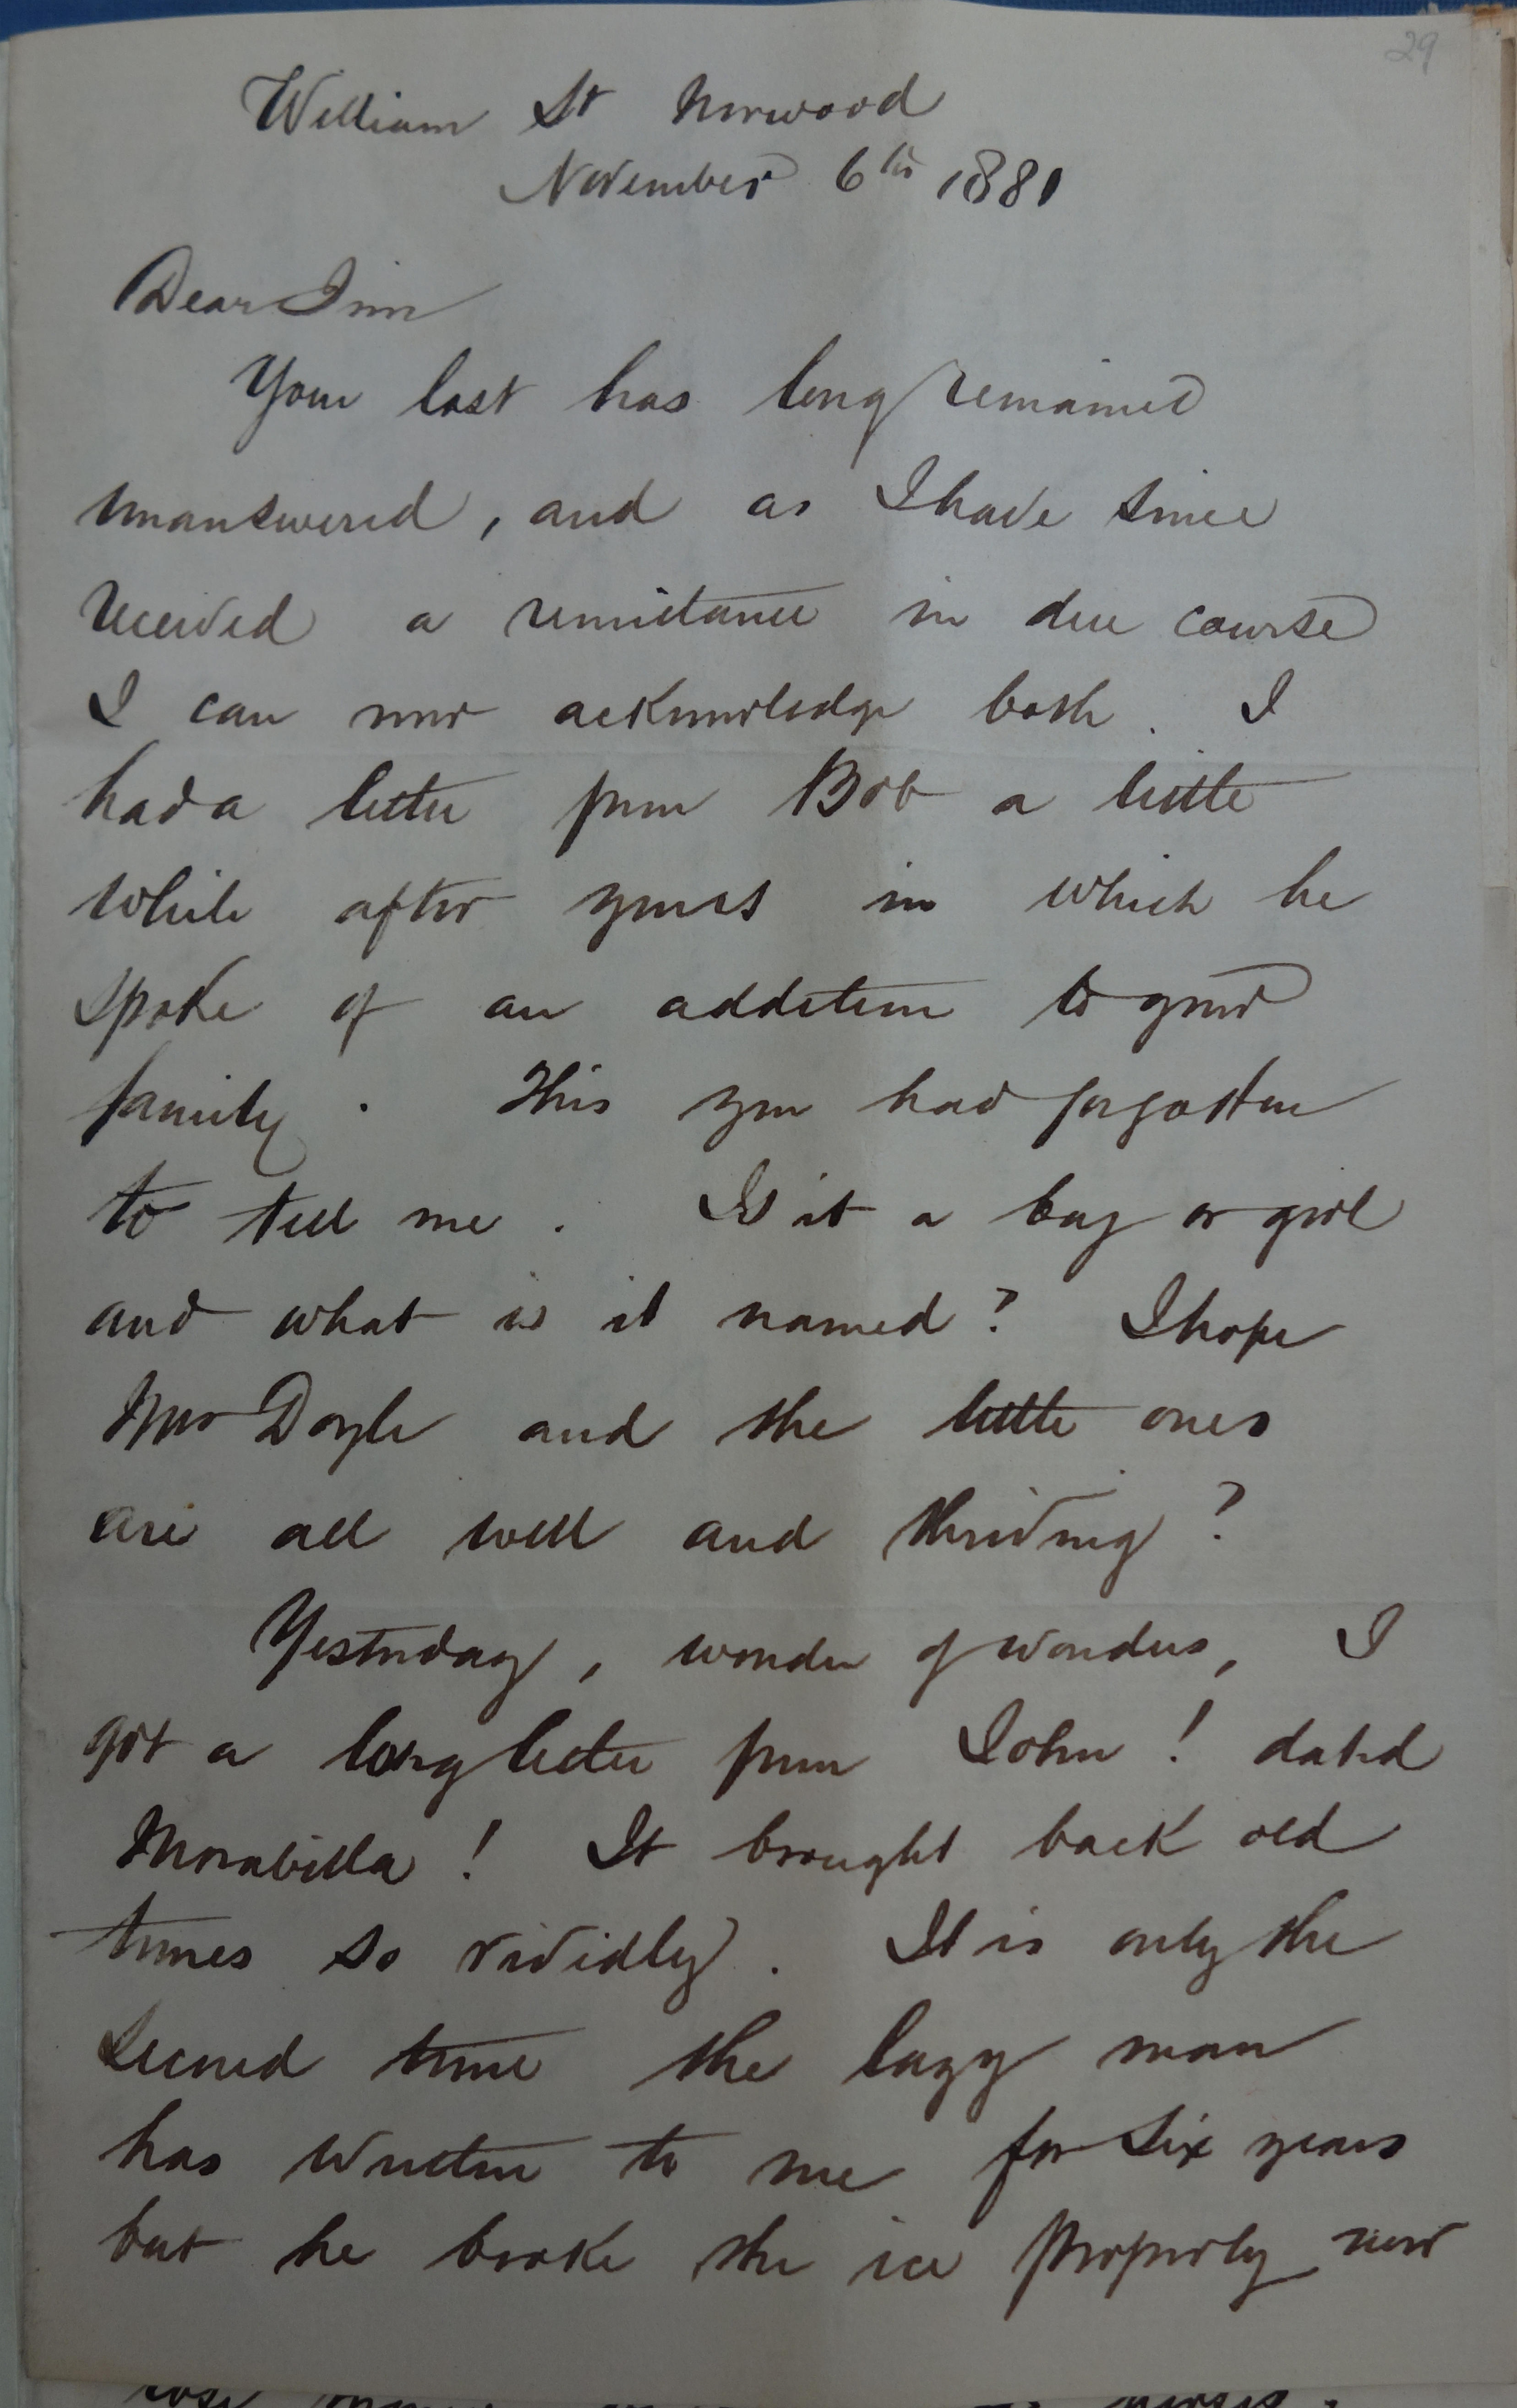 29
William St Norwood
November 6th 1881
Dear Jim
Your last has long remained
unanswered, and as I have since
received a remittance in due course
I can now acknowledge both. I
had a letter from Bob a little
while after yours in which he
spoke of an addition to your
family. This you had forgotten
to tell me. Is it a boy or girl
and what is it named? I hope
Mrs Doyle and the little ones
are all well and thriving?
Yesterday, wonder of wonders, I
got a long letter from John! dated
Morabilla! It brought back old
times so vividly. It is only the
second time the lazy man
has written to me for six years
but he broke the ice properly now